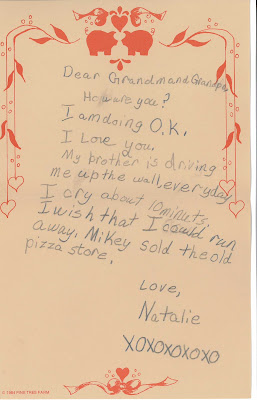 Dear Grandma and Grandpa
How are you?
I am doing O.K.
I Love you.
My brother is driving
me up the wall, everyday
I cry about 10 minuts.
I wish that I could run
away. Mikey sold the old
pizza store.
Love,
Natalie
XOXOXOXOXO